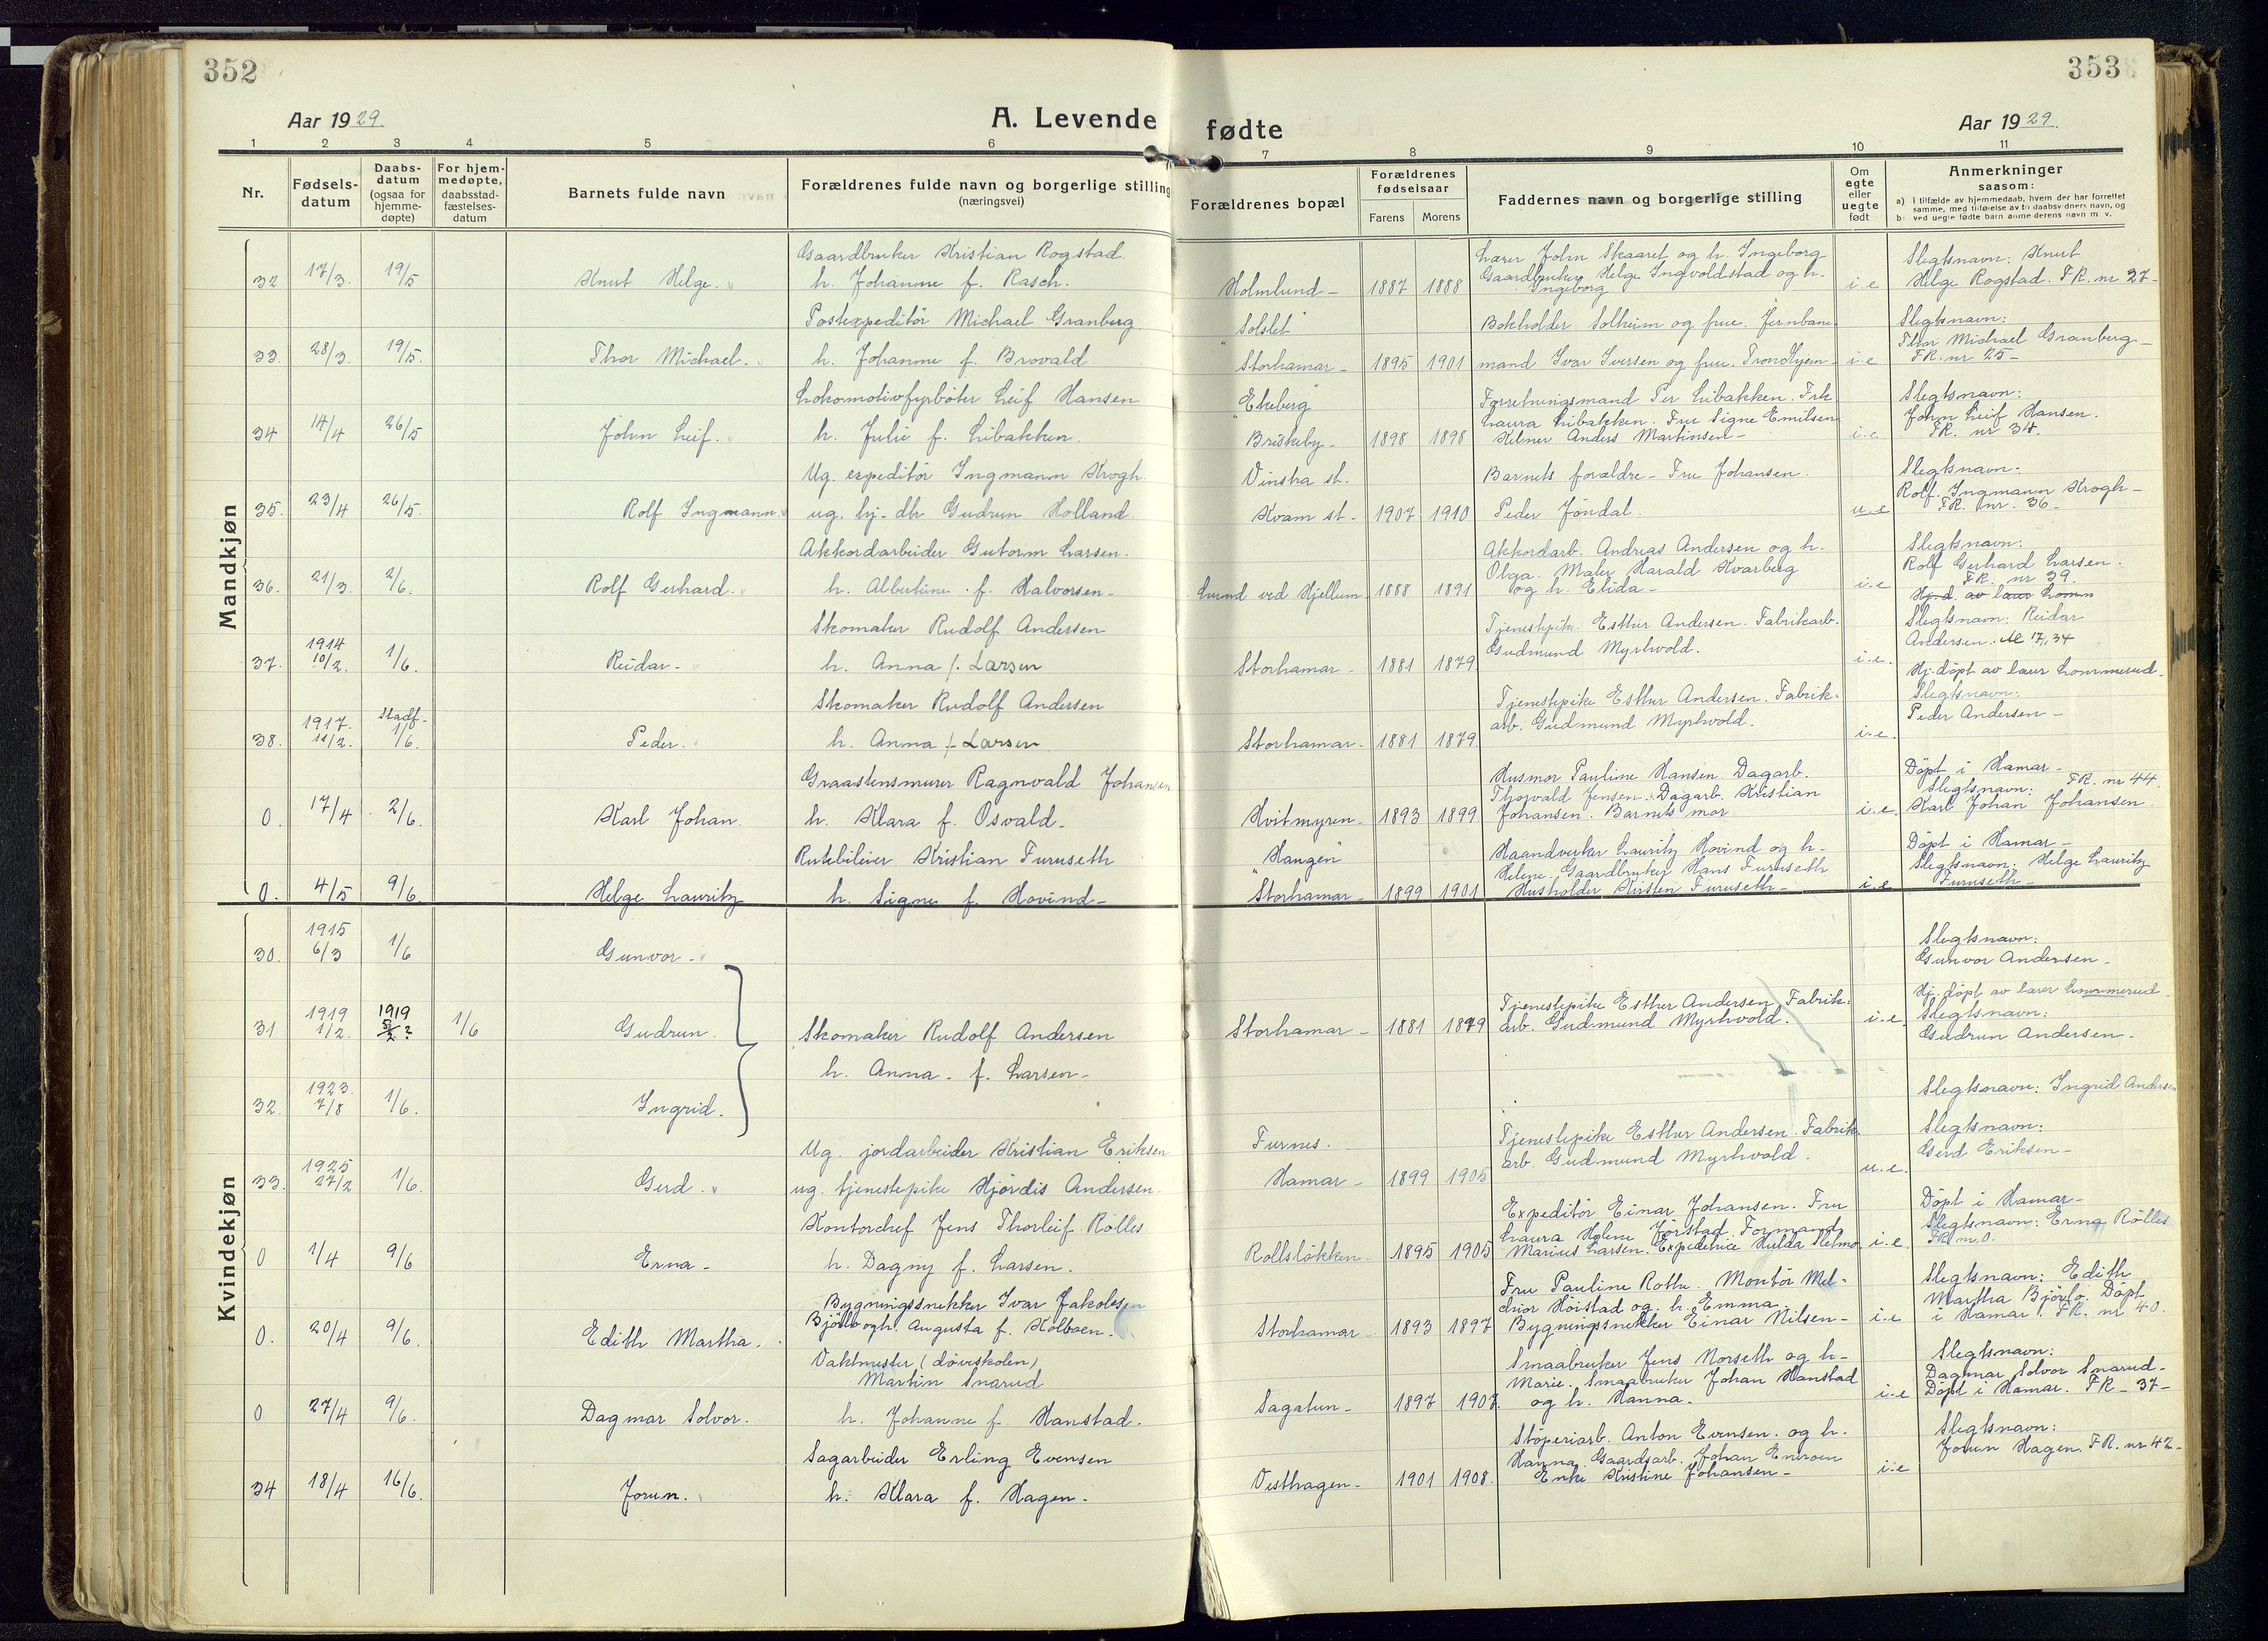 352
353
Aar 1929.
A. Levende fødte
Aar 1929.
1 2 3 4 5 6 7 8 9 10 11
Nr.
Fødsels-
datum
Daabs-
datum
(ogsaa for
hjemme-
døpte)
For hjem-
medøpte,
daabsstad-
fæstelses-
datum
Barnets fulde navn
Forældrenes fulde navn og borgerlige stilling
(næringsvei)
Forældrenes bopæl
Forældrenes
fødselsaar
Farens Morens
Faddernes navn og borgerlige stilling
Om
egte
eller
uegte
født
Anmerkninger
saasom:
a) i tilfælde av hjemmedaab, hvem der har forrettet
samme, med tilføielse av to daabsvidners navn, og
b) ved uegte fødte barn anmelderens navn m. v.
Mandkjøn
32 17/3. 19/5 Knut Helge.
Gaardbruker Kristian Rogstad.
h. Johanne f. Rasch.
Holmlund - 1887 1888
Lærer John Skaaret og h. Ingeborg
Gaardbruker Helge Ingvoldstad og h.
Ingeborg
i.e
Slegtsnavn: Knut
Helge Rogstad. FR. nr 27-
33. 28/3. 19/5. Thor Michael.
Postexpeditör Michael Granberg
h. Johanne f. Brovald.
"Solslet"
Storhamar - 1895 1901
Bokholder Solheim og frue. Jernbane
mand Ivar Iversen og frue. Trondhjem -
i.e
Slegtsnavn:
Thor Michael Granberg -
FR. nr 25-
34 14/4 26/5 John Leif.
Lokomotivfyrbøter Leif Hansen
h. Julie f. Libakken.
"Ekeberg"
Briskeby - 1898 1898
Forretningsmand Per Libakken. Frk.
Laura Libakken. Fru Signe Emilsen
Kelner Anders Martinsen -
i.e
Slegtsnavn:
John Leif Hansen.
FR. nr 34.
35. 23/4 26/5. Rolf Ingmann.
Ug. expeditör Ingmann Krogh.
ug. hj.-dtr Gudrun Holland.
Vinstra st.
Kvam st. - 1907 1910
Barnets forældre - Fru Johansen.
Peder Jöndal.
u.e
Slegtsnavn:
Rolf Ingmann Krogh -
FR. nr. 36 -
36. 21/3. 2/6. Rolf Gerhard.
Akkordarbeider Gutorm Larsen.
h. Albertine f. Halvorsen -
Lund ved Hjellum 1888 1891
Akkordarb. Andreas Andersen og h.
Olga. Maler Harald Kvarberg
og h. Elida -
i.e
Slegtsnavn:
Rolf Gerhard Larsen.
FR. nr 39.
Hj.d. av lærer Lomm
37. 1914 10/2. 1/6. Reidar -
Skomaker Rudolf Andersen
h. Anna f. Larsen
Storhamar - 1881 1879
Tjenestepike Esther Andersen. Fabrikarb.
Gudmund Myrhvold.
i.e.
Slegtsnavn: Reidar
Andersen.
38. 1917. 11/2. Stadf. 1/6. Peder.
Skomaker Rudolf Andersen
h. Anna f. Larsen
Storhamar - 1881 1879.
Tjenestepike Esther Andersen. Fabrik-
arb. Gudmund Myrhvold.
i.e.
Hj. döpt av lærer Lommerud.
Slegtsnavn:
Peder Andersen -
0. 17/4 2/6. Karl Johan.
Graastensmurer Ragnvald Johansen
h. Klara f. Osvald.
Kvitmyren - 1893 1899
Husmor Pauline Hansen. Dagarb.
Thorvald Jensen. Dagarb. Kristian
Johansen. Barnets mor
i.e.
Döpt i Hamar -
Slegtsnavn: FR. nr 44.
Karl Johan Johansen
0. 4/5 9/6. Helge Lauritz
Rutebileier Kristian Furuseth
h. Signe f. Hovind -
"Haugen"
Storhamar - 1899 1901
Haandverker Lauritz Hovind og h-
Helene. Gaardbruker Hans Furuseth
Husholder Kirsten Furuseth -
i.e
Döpt i Hamar -
Slegtsnavn: Helge Lauritz
Furuseth -
Kvindekjøn
30. 1915 6/3 1/6 Gunvor -
Slegtsnavn:
Gunvor Andersen -
31 1919 1/2. 1919 1/6 Gudrun.
Skomaker Rudolf Andersen
h. Anna. f. Larsen -
Storhamar - 1881 1879
Tjenestepike Esther Andersen. Fabrik-
arb. Gudmund Myrhvold.
i.e.
Hj. döpt av lærer Lommerud.
Slegtsnavn:
Gudrun Andersen -
32. 1923. 7/8 1/6. Ingrid.
Slegtsnavn: Ingrid Andersen
33. 1925 27/2 1/6. Gerd.
Ug. jordarbeider Kristian Eriksen
ug. tjenestepike Hjördis Andersen.
Furnes.
Hamar - 1899 1905
Tjenestepike Esther Andersen. Fabrik.
arb. Gudmund Myrhvold.
u.e.
Slegtsnavn:
Gerd Eriksen -
0 1/4 9/6 Erna -
Kontorchef Jens Thorleif Rölles
h. Dagny f. Larsen.
Rollsløkken - 1895 1905
Expeditör Einar Johansen. Fru
Laura Helene Jörstad. Formand
Marius Larsen. Expeditrice Hulda
i.e.
Döpt i Hamar -
Slegtsnavn: Erna Rölles
FR. nr. 0.
0. 20/4 9/6. Edith Martha.
Bygningssnekker Ivar Jakobsen
Bjölle og h. Augusta f. Kolboen.
Storhamar - 1893 1897
Fru Pauline Rothe. Montör Mel-
chior Höistad og h. Emma.
Bygningssnekker Einar Nilsen -
i.e
Slegtsnavn: Edith
Martha. Döpt
i Hamar. FR. nr 40.
0 27/4 9/6. Dagmar Solvor.
Vaktmester (döveskolen)
Martin Snarud
h. Johanne f. Hanstad.
Sagatun - 1897 1907.
Smaabruker Jens Norseth og h-
Marie. Smaabruker Johan Hanstad
og h. Hanna.
i.e
Slegtsnavn:
Dagmar Solvor Snarud.
Döpt i Hamar. FR - 37-
34 18/4 16/6. Jorun.
Sagarbeider Erling Evensen
h. Klara f. Hagen -
Vesthagen - 1901 1908.
Stöperiarb. Anton Evensen. og h.
Hanna. Gaardsarb. Johan
Enke Kristine Johansen -
i.e
Slegtsnavn:
Jorun Hagen. FR. nr 42-